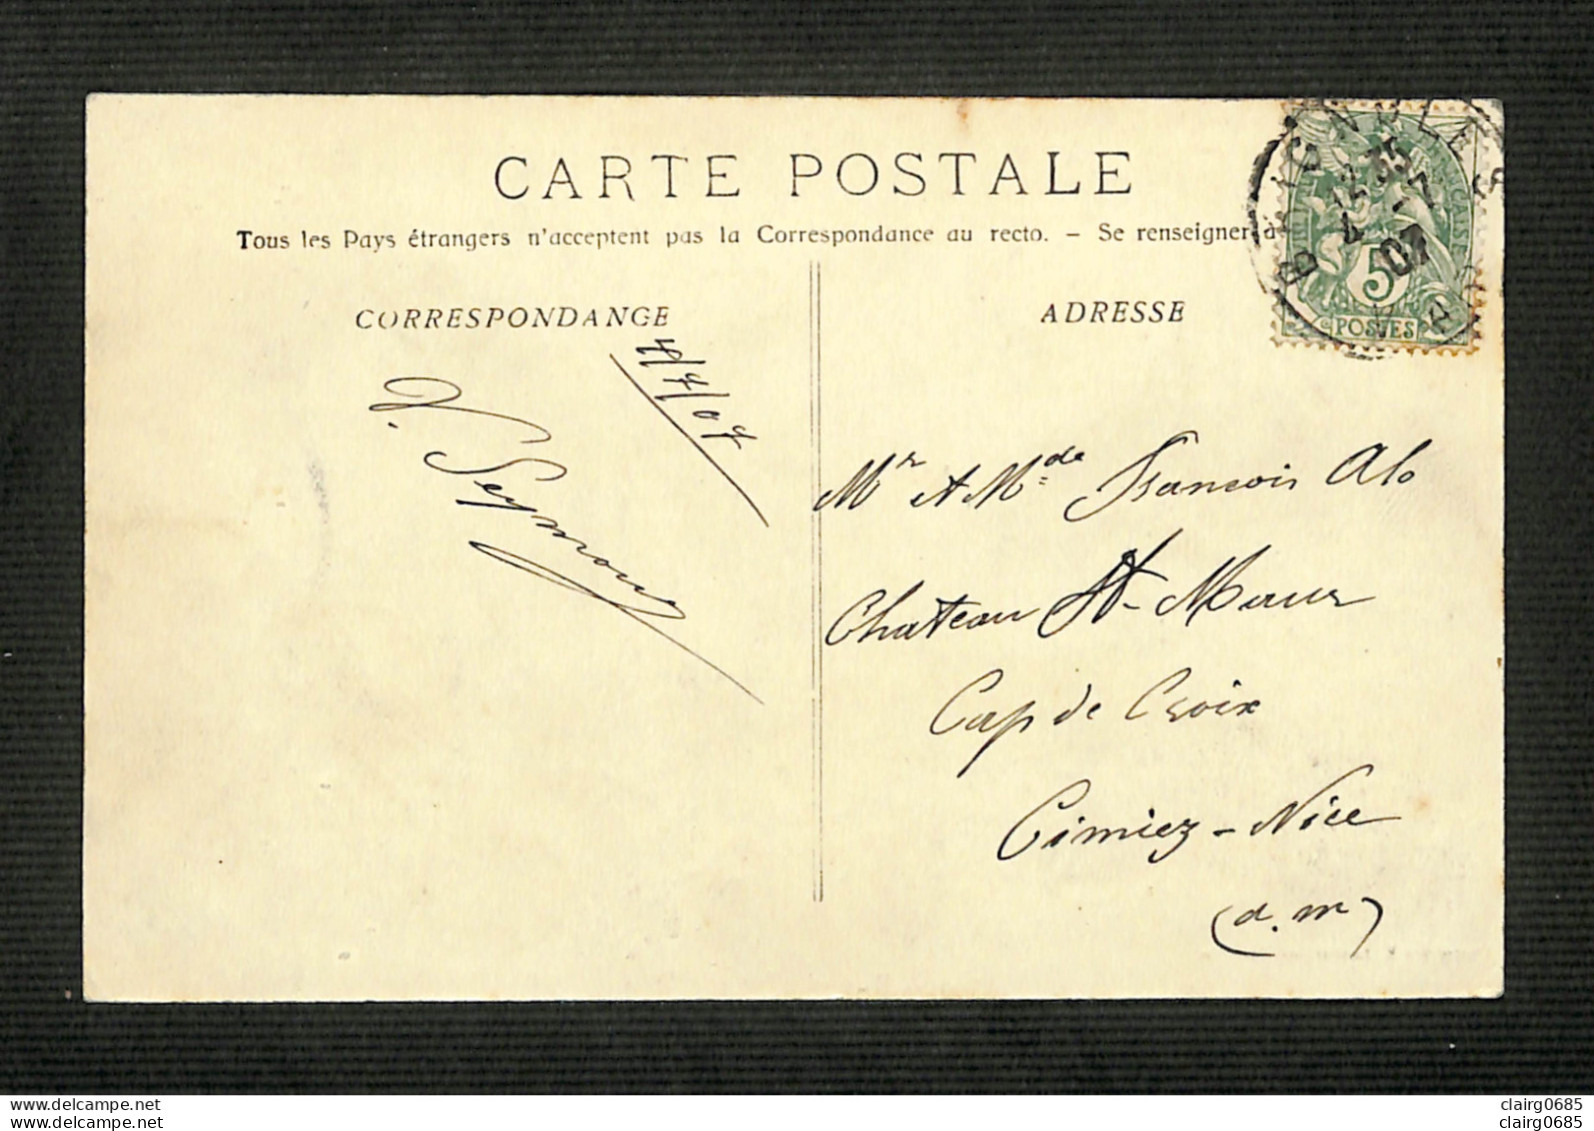 CARTE POSTALE
Tous les Pays étrangers n'acceptent pas la Correspondance au recto. - Se renseigner à
CORRESPONDANCE
ADRESSE
BRIGNOLES
12 35
4 -7
07
5
POSTES
4/7/07
V. Seymour
Mr & Mde Francois Alo
Chateau St-Maur
Cap de Croix
Cimiez-Nice
(a.m)
www.delcampe.net
www.delcampe.net
clairg0685
clairg0685